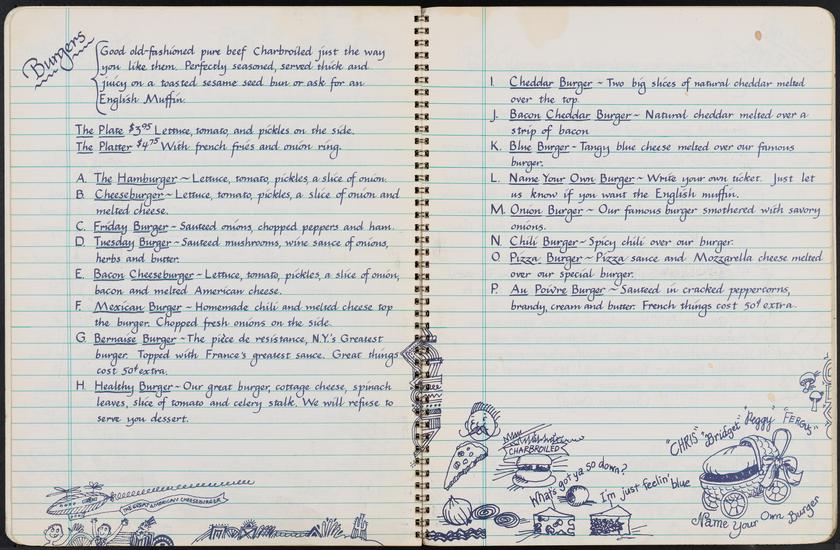 Burgers
Good old-fashioned pure beef Charbroiled just the way
you like them. Perfectly seasoned, served thick and
juicy on a toasted sesame seed bun or ask for an
English Muffin.
The Plate $3.95 Lettuce, tomato, and pickles on the side.
The Platter $4.75 With french fries and onion ring.
A. The Hamburger ~ Lettuce, tomato, pickles, a slice of onion.
B. Cheeseburger ~ Lettuce, tomato, pickles, a slice of onion and
melted cheese.
C. Friday Burger ~ Sauteed onions, chopped peppers and ham.
D. Tuesday Burger ~ Sauteed mushrooms, wine sauce of onions,
herbs and butter.
E. Bacon Cheeseburger ~ Lettuce, tomato, pickles, a slice of onion,
bacon and melted American cheese.
F. Mexican Burger ~ Homemade chili and melted cheese top
the burger. Chopped fresh onions on the side.
G. Bernaise Burger ~ The pièce de resistance, N.Y.'s Greatest
burger. Topped with France's greatest sauce. Great things
cost 50¢ extra.
H. Healthy Burger ~ Our great burger, cottage cheese, spinach
leaves, slice of tomato and celery stalk. We will refuse to
serve you dessert.
THE GREAT AMERICAN CHEESEBURGER
I. Cheddar Burger ~ Two big slices of natural cheddar melted
over the top.
J. Bacon Cheddar Burger ~ Natural cheddar melted over a
strip of bacon
K. Blue Burger ~ Tangy blue cheese melted over our famous
burger.
L. Name Your Own Burger ~ Write your own ticket. Just let
us know if you want the English muffin.
M. Onion Burger ~ Our famous burger smothered with savory
onions.
N. Chili Burger ~ Spicy chili over our burger.
O. Pizza Burger ~ Pizza sauce and Mozzarella cheese melted
over our special burger.
P. Au Poivre Burger ~ Sauteed in cracked peppercorns,
brandy, cream and butter. French things cost 50¢ extra.
CHARBROILED
"CHRIS" "Bridget" "Peggy" "FERGUS"
What's got ya so down?
I'm just feelin' blue
Name Your Own Burger